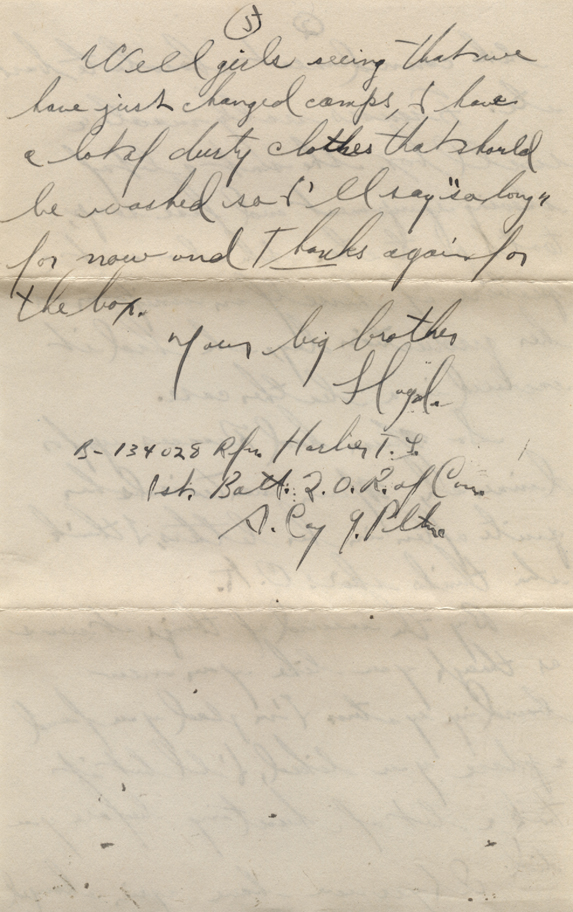 5
Well girls seeing that we
have just changed camps, I have
a lot of dusty clothes that should
be washed so I'll say "so long"
for now and Thanks again for
the box.
Your big brother
Lloyd.
B-134028 Rfn. T. L.
1st. Batt. Q.O.R. of Can.
A. Coy 9. Pltn